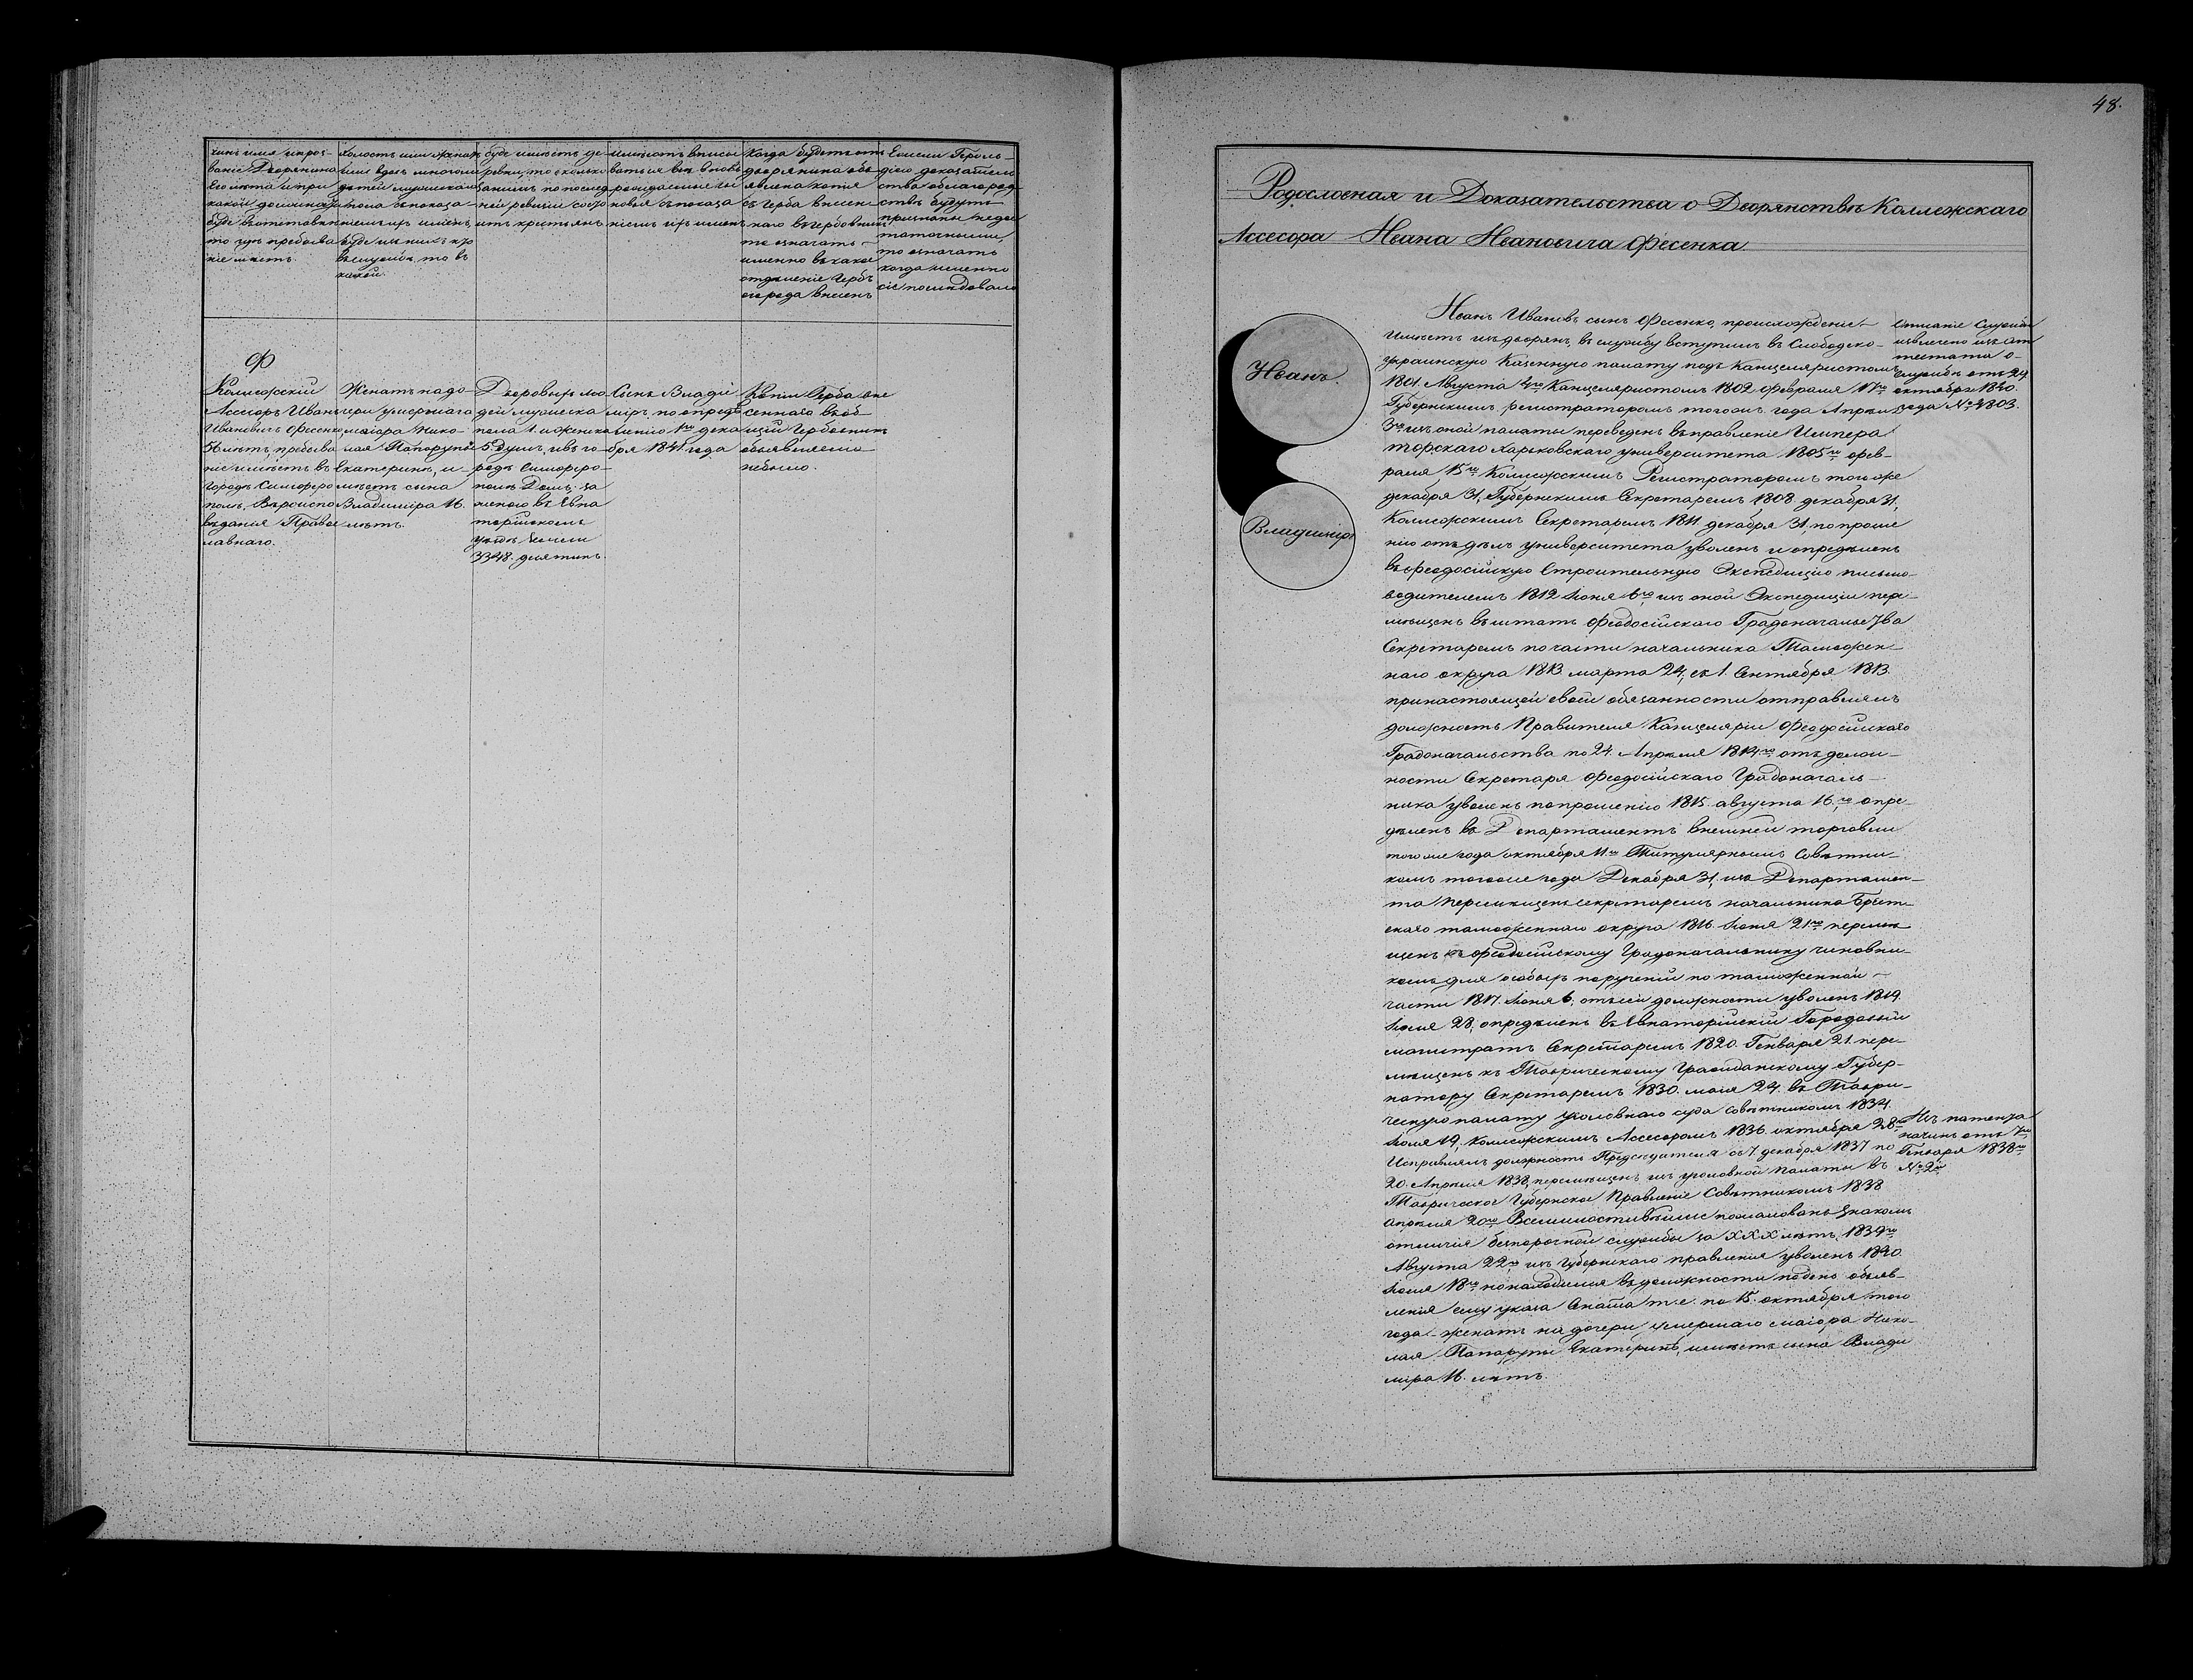 чинъ имя и проз-
ваніе Дворянина
Его лѣта и при
какой должности
буде въ отставкѣ
то гдѣ пребыва
ніе имѣетъ.
холостъ или женатъ
или вдовъ много ли
дѣтей мужескаго
пола съ показа-
ніемъ ихъ именъ,
буде изъ нихъ кто
въ службѣ, то въ
какой.
буде имѣетъ де-
ревни, то сколько
за нимъ по послед
ней ревизіи состо
итъ крестьянъ
имѣютъ вписы
ваться всѣ вновь
рождаемые сы
новья съ показа
ніемъ ихъ именъ
Когда будетъ отъ
дворянина объ
явлена копія
съ герба внесен
наго въ гербовникъ
то означать
именно въ какое
отдѣленіе Гербъ
его рода внесенъ
Если Героль-
діею доказатель
ства о благород
ствѣ будутъ
признаны недос
таточными,
то означать
когда именно
сіе послѣдовало
Ф
Коллежскій
Ассесоръ Иванъ
Ивановичъ Фесенко
56 лѣтъ, пребыва
ніе имѣетъ въ
городѣ Симферо
полѣ, Вѣроиспо
вѣданія Правос
лавнаго.
Женатъ на до
чери умершаго
маіора Нико-
лая Папарупи
Екатеринѣ, и
мѣетъ сына
Владиміра 16.
лѣтъ.
Дворовыхъ лю
дей мужеска
пола 1. и женска
5. душъ, и въ го-
родѣ Симферо-
полѣ Домъ. за
женою въ Евпа
торійскомъ
уѣздѣ земли
3348. десятинъ.
Сынъ Влади
міръ, по опредѣ
ленію 1го дека
бря 1841. года
Копіи Герба вне
сеннаго въ об-
щій Гербовникъ
объявляемо
небыло.
48.
Родословная и Доказательства о Дворянствѣ Коллежскаго
Ассесора Ивана Ивановича Фесенка
Иванъ.
Владиміръ
Иванъ Ивановъ сынъ Фесенко, происхожденіе
имѣетъ изъ дворянъ, въ службу вступилъ въ Слободско-
украинскую Казенную палату подъ Канцеляристомъ
1801. Августа 4го Канцеляристомъ 1802 Февраля 17го
Губернскимъ регистраторомъ тогожъ года Апрѣля
3го изъ оной палаты переведенъ въ правленіе Импера
торскаго Харьковскаго университета 1805го Фев-
раля 15го Коллежскимъ Регистраторомъ того же
декабря 31, Губернскимъ Секретаремъ 1808 декабря 31,
Коллежскимъ Секретаремъ 1811 декабря 31, по проше
нію отъ дѣлъ университета уволенъ и опредѣленъ
въ Феодосійскую Строительную Экспедицію письмо-
водителемъ 1812 Іюня 6го изъ оной Экспедиціи пере-
мѣщенъ въ штатъ Феодосійскаго Градоначальства
Секретаремъ по части начальника Таможен-
наго округа 1813 марта 24, съ 1. Сентября 1813.
при настоящей своей обязанности отправлялъ
должность Правителя Канцеляріи Феодосійскаго
Градоначальства по 24. Апрѣля 1814го отъ долж-
ности Секретаря Феодосійскаго Градоначаль-
ника уволенъ по прошенію 1815 августа 16го опре-
дѣленъ въ Департаментъ внешней торговли
того же года октября 11го Титулярнымъ Совѣтни-
комъ того же года Декабря 31, изъ Департамен-
та перемѣщенъ секретаремъ начальника Брест-
скаго таможеннаго округа 1816 Іюня 21го перемѣ
щенъ къ Феодосійскому Градоначальнику чиновни-
комъ для особыхъ порученій по таможенной
части 1817. Іюня 6, отъ сей должности уволенъ 1819.
Іюля 28, опредѣленъ въ Евпаторійскій Городовый
магистратъ Секретаремъ 1820. Генваря 21. пере-
мѣщенъ къ Таврическому Гражданскому Губер-
натору Секретаремъ 1830. маія 24. въ Таври-
ческую палату уголовнаго суда совѣтникомъ 1834.
Іюля 19, Коллежскимъ Ассесоромъ 1836. октября 28го
Исправлялъ должность Предсѣдателя съ 7 декабря 1837 по
20. Апрѣля 1838, перемѣщенъ изъ уголовной Палаты въ
Таврическое Губернское Правленіе Совѣтникомъ 1838
апрѣля 20го Всемилостивѣйше пожалованъ знакомъ
отличія безпорочной службы за XXX лѣтъ, 1839го
Августа 22го изъ Губернскаго правленія уволенъ 1840.
Іюля 18го но находился въ должности по день объяв-
ленія ему указа Сената т. е. по 15. октября того
года - женатъ на дочери умершаго маіора Нико-
лая Папарупи Екатеринѣ, имѣетъ сына Влади
міра 16. лѣтъ.
Описаніе службы
извлечено изъ ат
тестата о
службѣ отъ 24
октября 1840.
года № 4803.
Изъ патента
на чинъ отъ 7го
Генваря 1838го
№ 2го